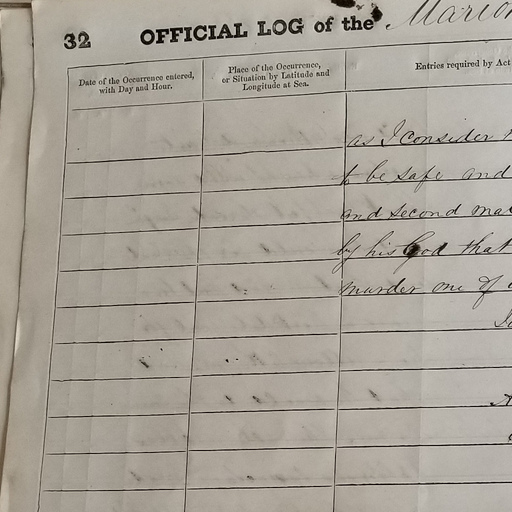 32 OFFICIAL LOG of the Marion
Date of the Occurrence entered,
with Day and Hour.
Place of the Occurrence,
or Situation by Latitude and
Longitude at Sea.
Entries required by Act
as I consider
to be safe and
and second ma
by his God that
murder one of